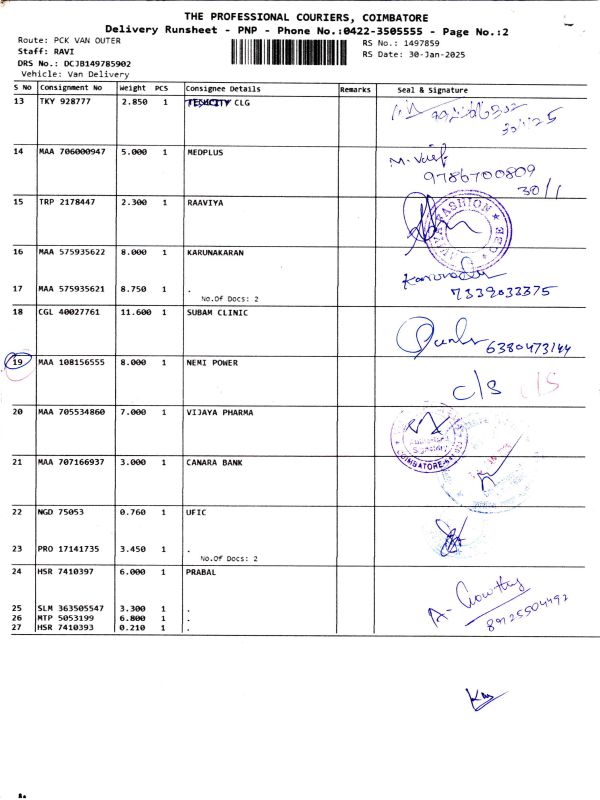 THE PROFESSIONAL COURIERS, COIMBATORE
Delivery Runsheet - PNP - Phone No.:0422-3505555 - Page No.:2
Route: PCK VAN OUTER
Staff: RAVI
DRS No.: DCJB149785902
Vehicle: Van Delivery
RS No.: 1497859
RS Date: 30-Jan-2025
S No Consignment No Weight PCS Consignee Details Remarks Seal & Signature
13 TKY 928777 2.850 1 CLG
30/1/25
14 MAA 706000947 5.000 1 MEDPLUS
9786700809
30/1
15 TRP 2178447 2.300 1 RAAVIYA
FASHION
16 MAA 575935622 8.000 1 KARUNAKARAN
17 MAA 575935621 8.750 1 .
No.Of Docs: 2
7339033375
18 CGL 40027761 11.600 1 SUBAM CLINIC
6380473144
19 MAA 108156555 8.000 1 NEMI POWER
C/S C/S
20 MAA 705534860 7.000 1 VIJAYA PHARMA
Authorised
Signatory
COIMBATORE
21 MAA 707166937 3.000 1 CANARA BANK
22 NGD 75053 0.760 1 UFIC
23 PRO 17141735 3.450 1 .
No.Of Docs: 2
24 HSR 7410397 6.000 1 PRABAL
A- Gowthy
8925504492
25 SLM 363505547 3.300 1 .
26 MTP 5053199 6.800 1 .
27 HSR 7410393 0.210 1 .